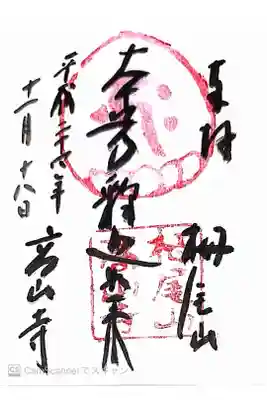 奉拝
栂尾山
釈迦如来
高山寺
平成
年
十一月十八日
栂尾山
高山寺
CS CamScannerでスキャン